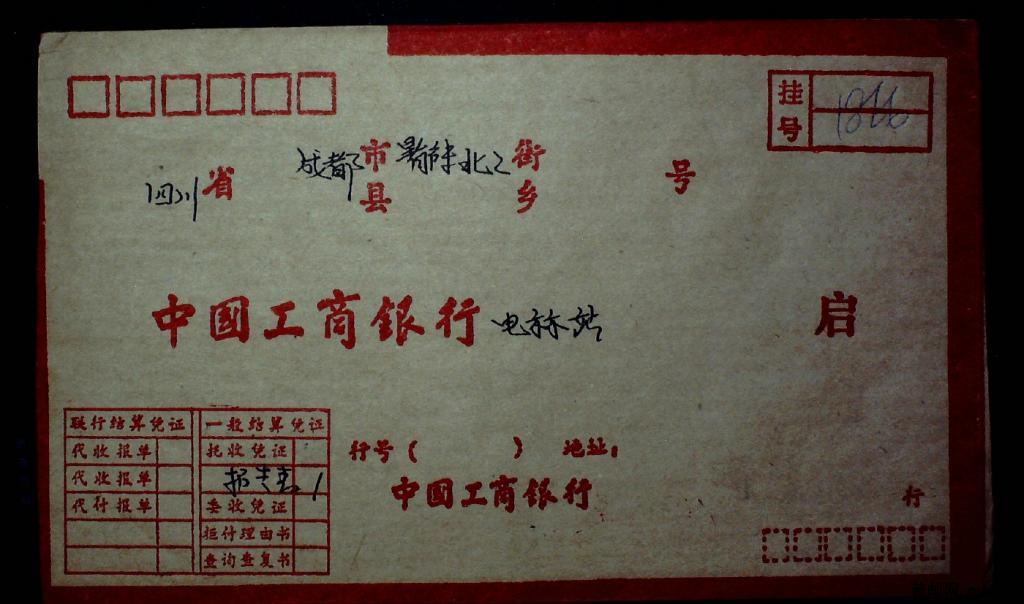 挂号
四川省 成都市县 北 街乡 号
中国工商银行 电 站 启
联行结算凭证 一般结算凭证
代收报单 托收凭证
代收报单
代付报单 委收凭证
拒付理由书
查询查复书
行号( ) 地址:
中国工商银行 行